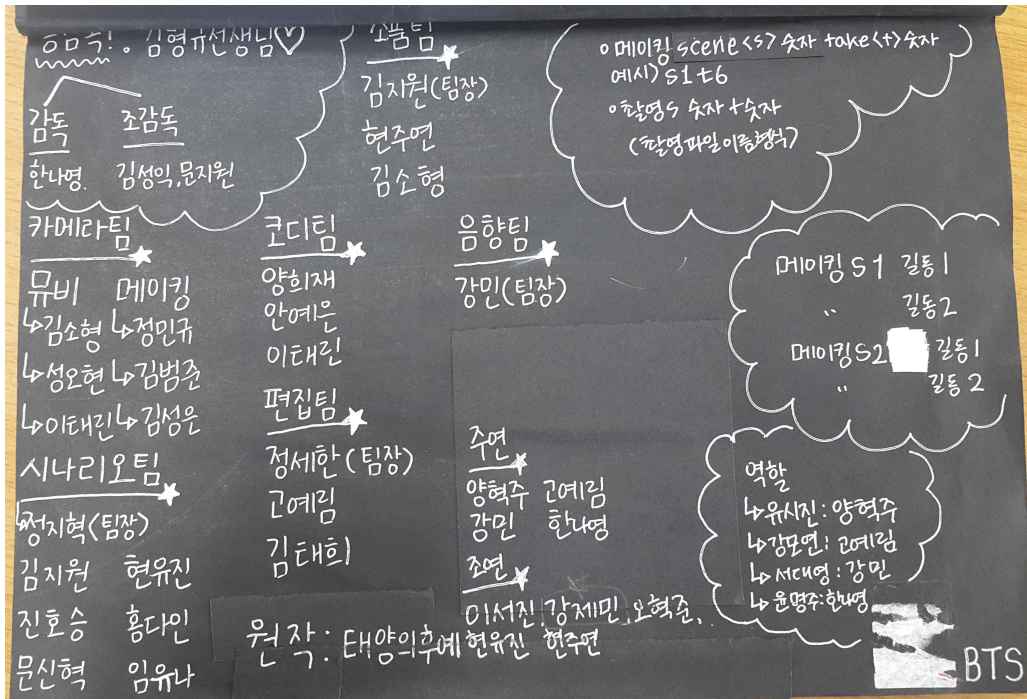 김형유선생님♡
감독 조감독
한나영. 김성익,문지원
소품팀
김지원(팀장)
현주연
김소형
메이킹 scene<s> 숫자 take<t> 숫자
예시) s1 t6
촬영 s 숫자 + 숫자
(촬영파일이름형식)
카메라팀
뮤비 메이킹
↳김소형 ↳정민규
↳성오현 ↳김범준
↳이태린 ↳김성은
시나리오팀
↳정지혁(팀장)
김지원 현유진
진호승 홍다인
문신혁 임유나
코디팀
양희재
안예은
이태린
편집팀
정세한(팀장)
고예림
김태희
음향팀
강민(팀장)
주연
양혁주 고예림
강민 한나영
조연
이서진, 강제민, 오혁준,
현유진 현주연
원작: 태양의후예
메이킹 S1 길동1
" 길동2
메이킹 S2 길동1
" 길동2
역할
↳유시진: 양혁주
↳강모연: 고예림
↳서대영: 강민
↳윤명주: 한나영
BTS